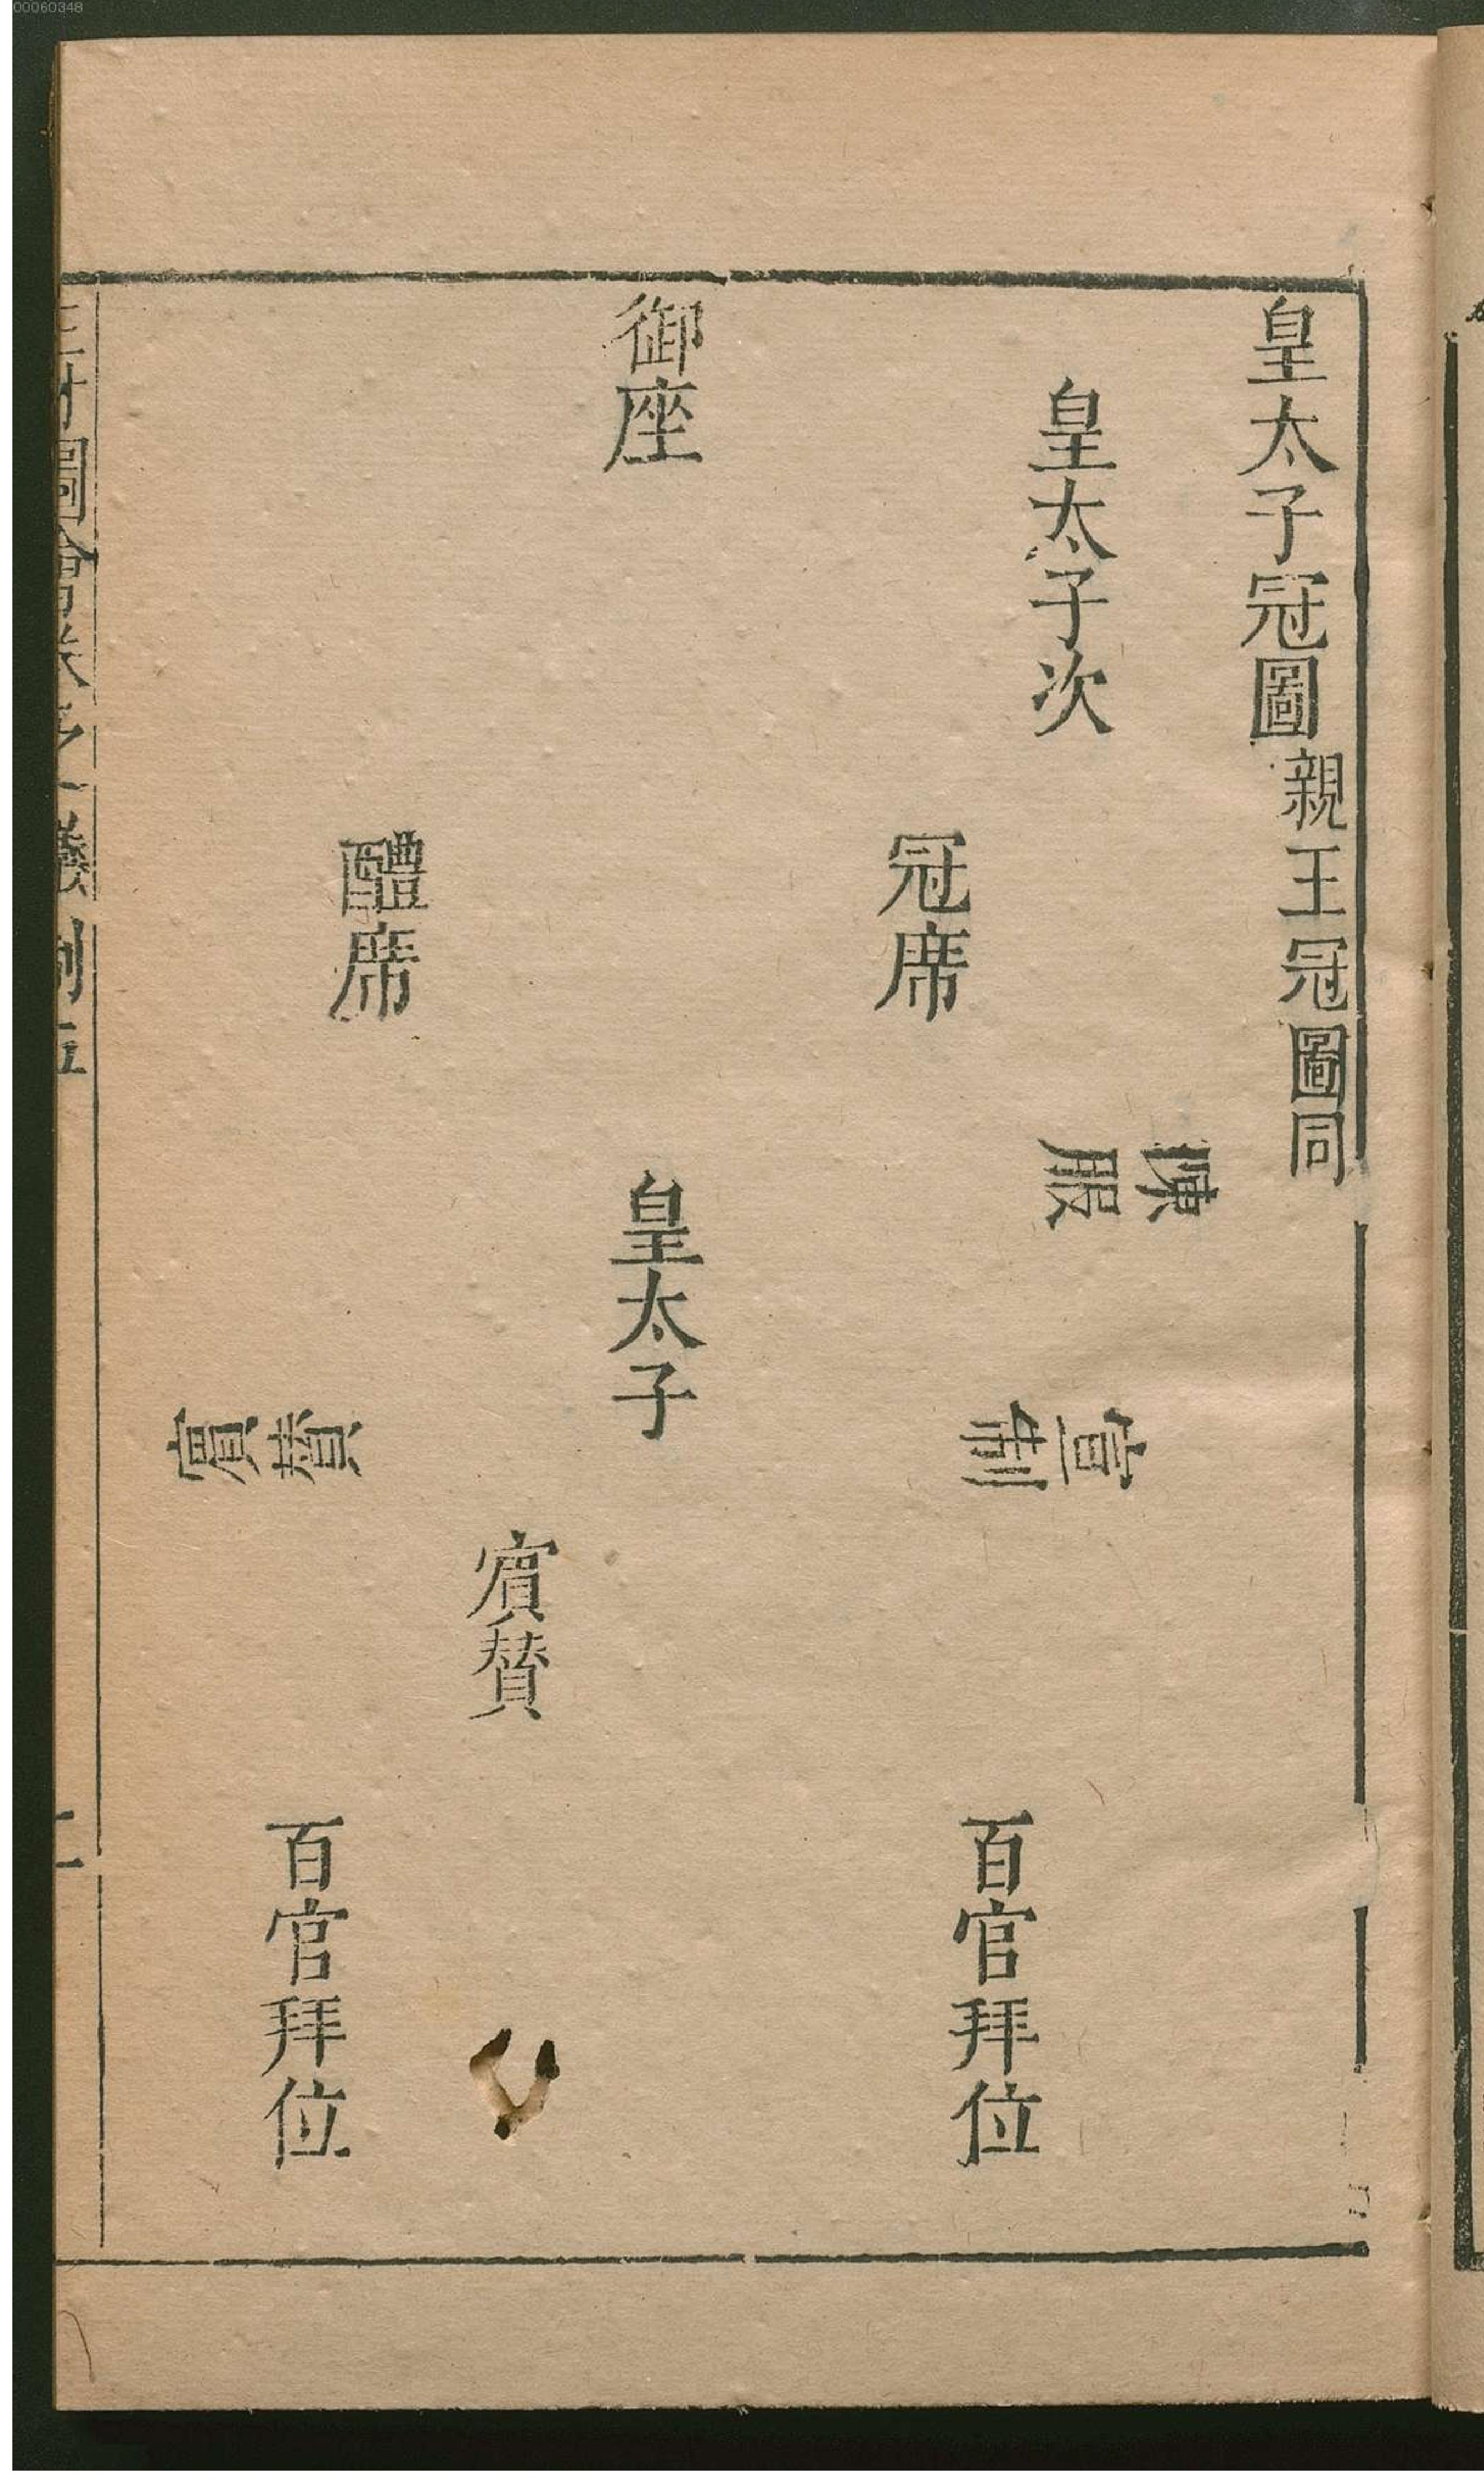 00060348
皇太子冠圖親王冠圖同
皇太子次
陳服
冠席
宣制
百官拜位
御座
皇太子
賓贊
醴席
賓贊
百官拜位
圖會卷之儀制五